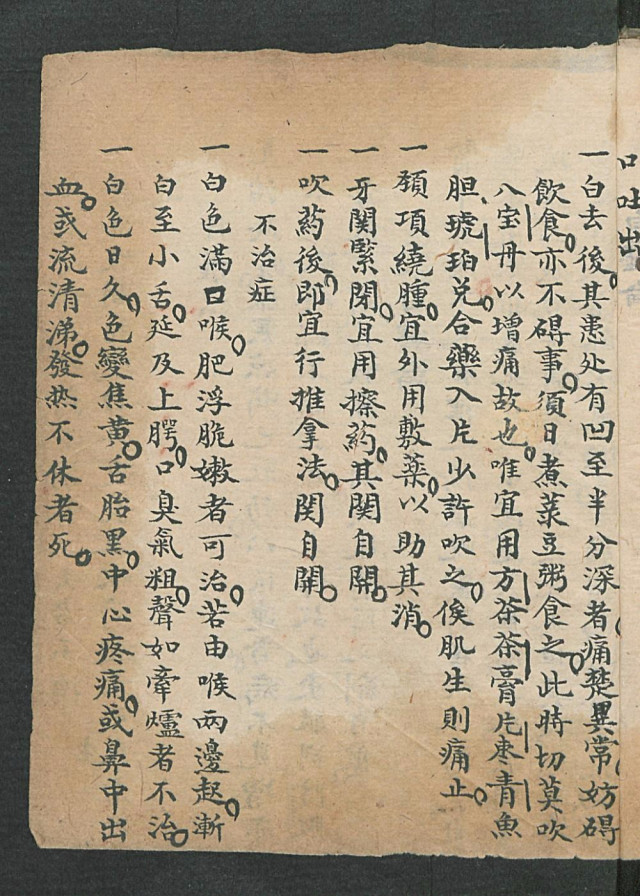 口吐出
一白去後其患处有凹至半分深者痛楚異常妨碍
飲食亦不碍事須日煮菉豆粥食之此時切莫吹
八宝丹以增痛故也唯宜用方茶茶膏片枣青魚
胆琥珀兑合藥入片少許吹之俟肌生則痛止
一頚項繞腫宜外用敷藥以助其消
一牙関緊閉宜用擦药其関自開
一吹药後即宜行推拿法関自開
不治症
一白色滿口喉肥浮脆嫩者可治若由喉两邊起漸
白至小舌延及上腭口臭氣粗聲如牽爐者不治
一白色日久色變焦黄舌胎黒中心疼痛或鼻中出
血或流清涕發热不休者死